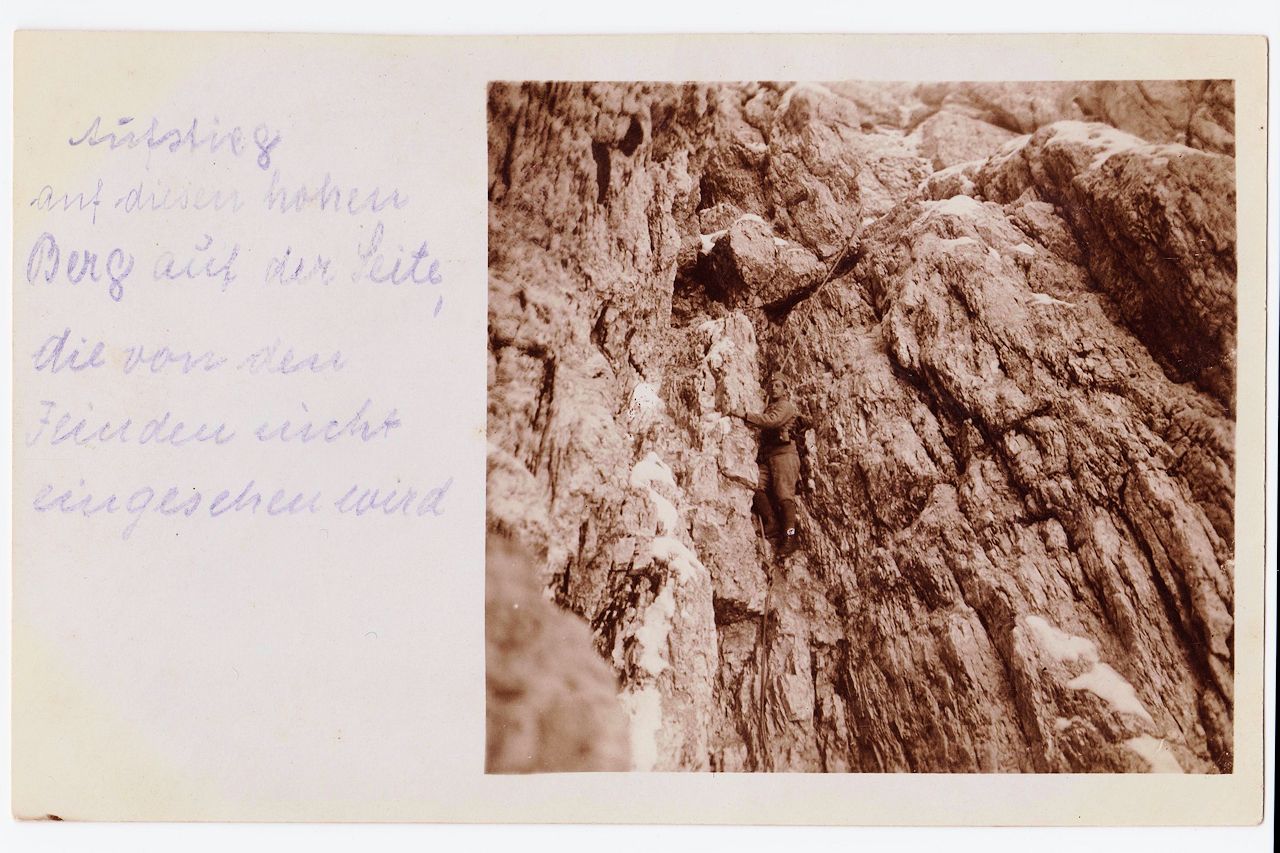 Aufstieg
auf diesen hohen
Berg auf der Seite,
die von den
Feinden nicht
eingesehen wird